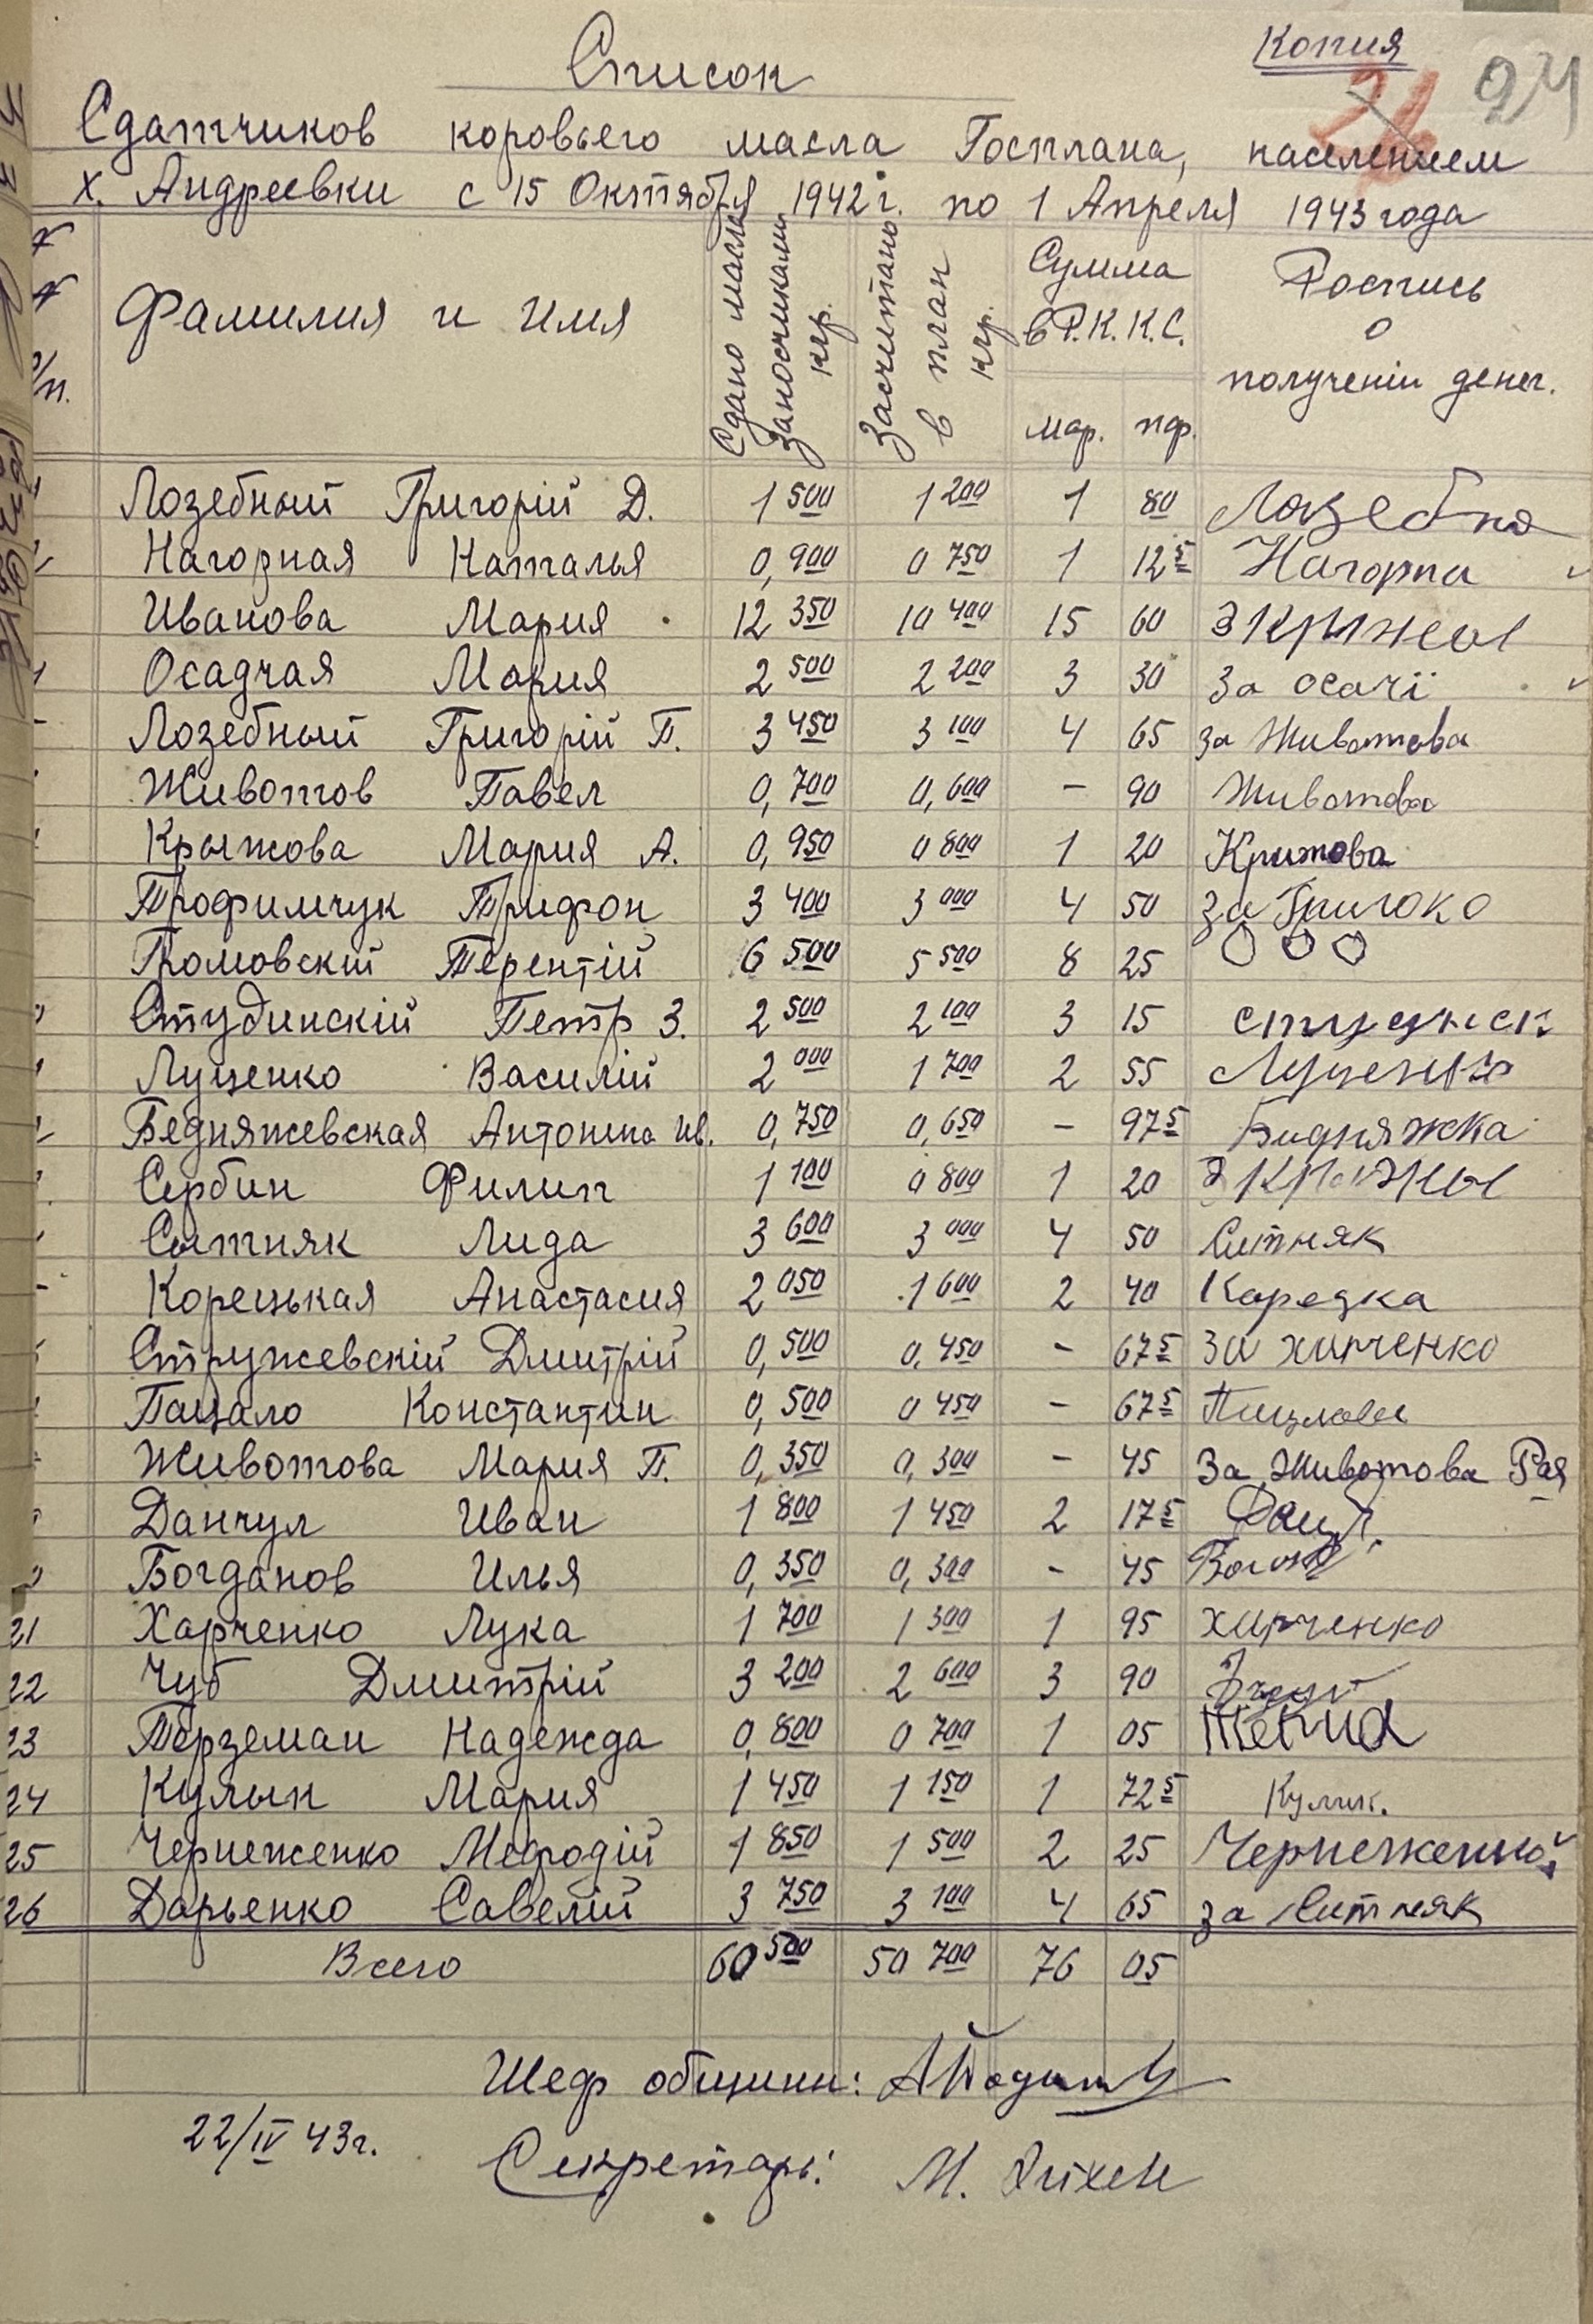 Копия
24
Список
Сдатчиков коровьего масла Госплана, населением
х. Андреевки с 15 Октября 1942 г. по 1 Апреля 1943 года
Фамилия и Имя
Сдано масла заносчиками кгр.
Засчитано в план кгр.
Сумма в Р.К.К.С.
мар. пф.
Роспись о полученіи денег.
Лозебный Григорій Д. 1 500 1 200 1 80 Лозебна
Нагорная Наталья 0,900 0 750 1 12 5 Нагорна
Иванова Мария 12 350 10 400 15 60
Осадчая Мария 2 500 2 200 3 30 За осачі
Лозебный Григорій П. 3 450 3 100 4 65 за Животова
Животов Павел 0,700 0,600 - 90 Животова
Крыжова Мария А. 0,950 0 800 1 20 Крижова
Трофимчук Трифон 3 400 3 000 4 50 за
Громовскій Терентій 6 500 5 500 8 25
Студинскій Петр З. 2 500 2 100 3 15
Луценко Василій 2 000 1 700 2 55 Луценко
Бедняжевская Антонина Ив. 0,750 0,650 - 97 5 Бидняжка
Сербин Филип 1 100 0 800 1 20
Сытняк Лида 3 600 3 000 4 50 Ситняк
Корецькая Анастасия 2 050 1 600 2 40 Корецка
Стружевскій Дмитрій 0,500 0,450 - 67 5 За харченко
Пацало Константин 0,500 0 450 - 67 5
Животова Мария П. 0,350 0,300 - 45 За Животова Рая
Данчул Иван 1 800 1 450 2 17 5
Богданов Илья 0,350 0,300 - 45
21 Харченко Лука 1 700 1 300 1 95 харченко
22 Чуб Дмитрій 3 200 2 600 3 90
23 Терземан Надежда 0,800 0 700 1 05
24 Кулык Мария 1 450 1 150 1 72 5 Кулик.
25 Чернеженко Мефодій 1 850 1 500 2 25 Чернеженко
26 Дарьенко Савелій 3 750 3 100 4 65 за Ситняк
Всего 60 500 50 700 76 05
Шеф общины:
22/IV 43 г. Секретарь: М.